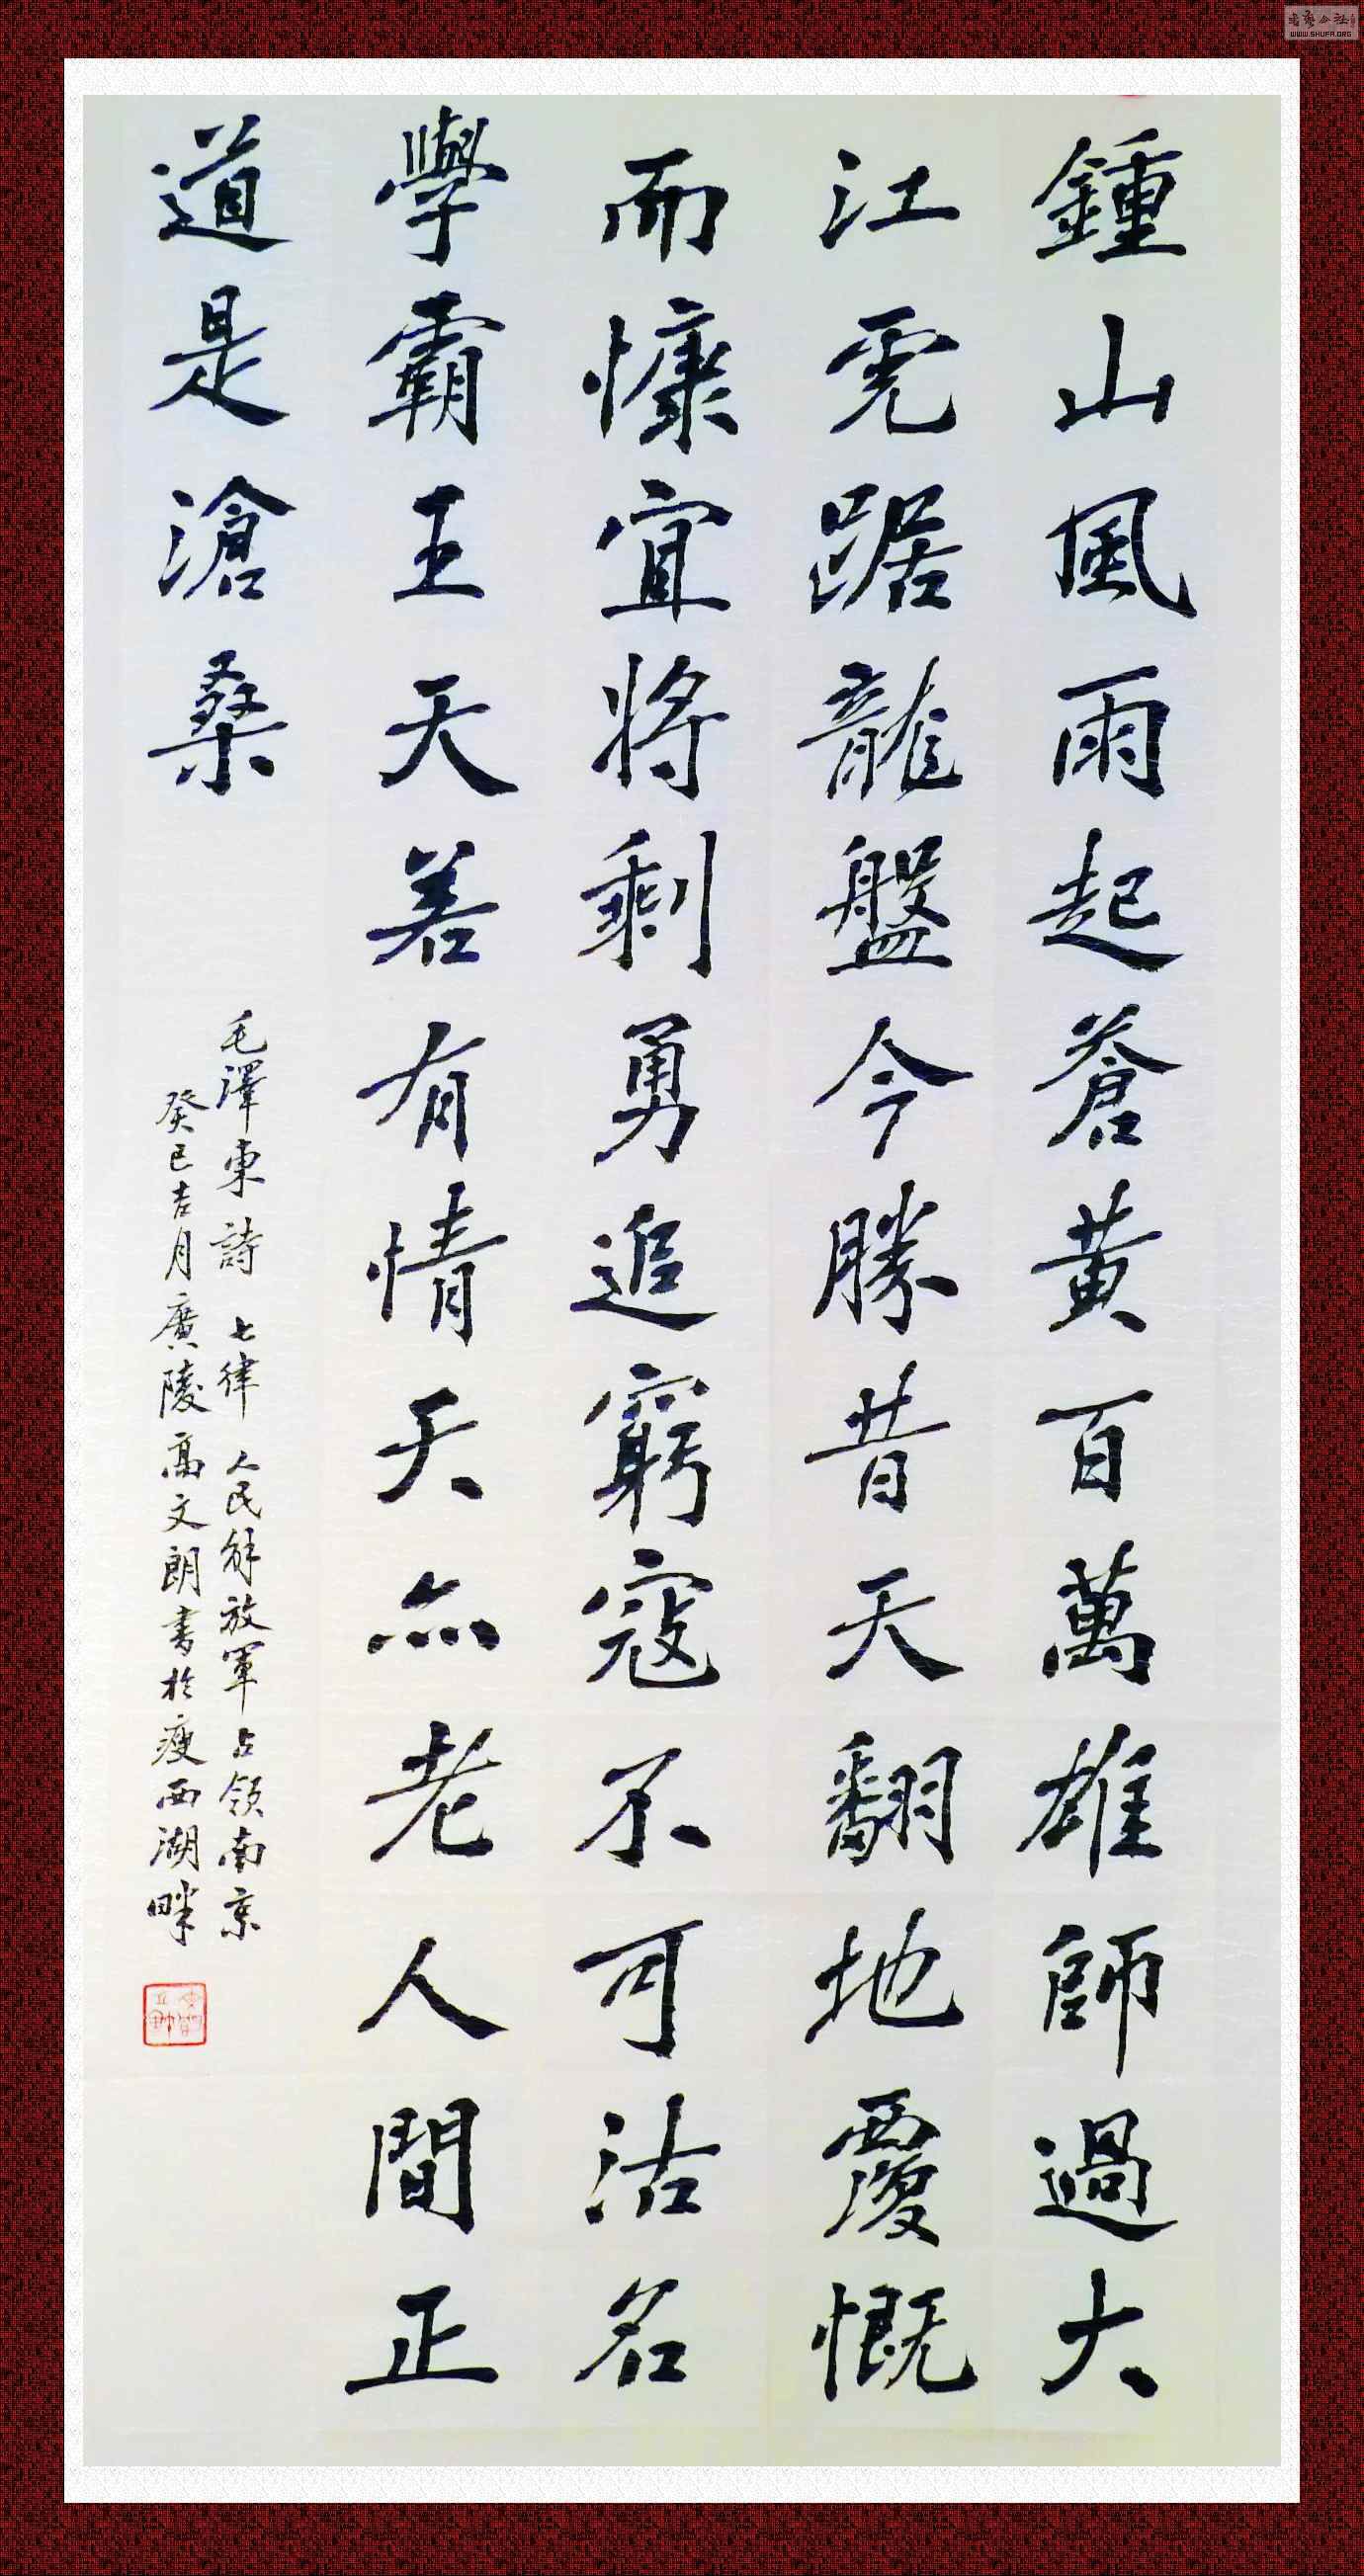 鍾山風雨起蒼黃百萬雄師過大
江虎踞龍盤今勝昔天翻地覆慨
而慷宜將剩勇追窮寇不可沽名
學霸王天若有情天亦老人間正
道是滄桑
毛澤東詩 七律 人民解放軍占領南京
癸巳吉月廣陵高文朗書於瘦西湖畔
WWW.SHUFA.ORG